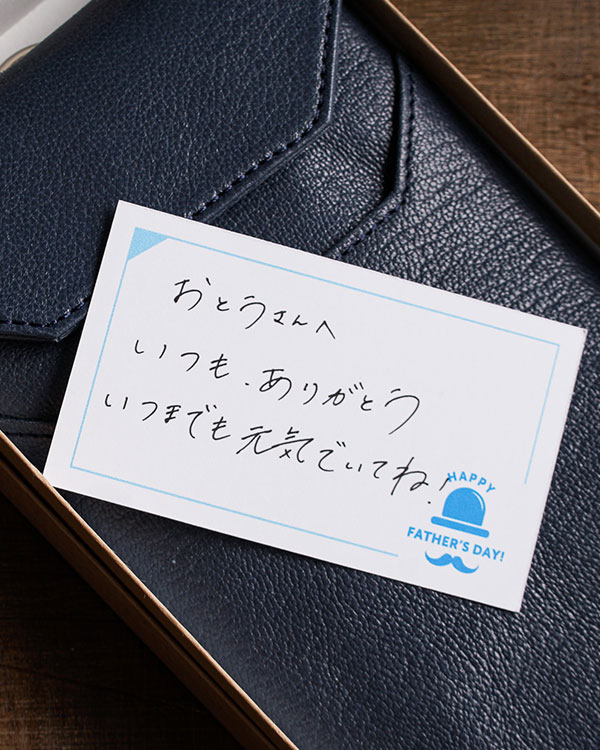 おとうさんへ
いつも、ありがとう
いつまでも元気でいてね!
HAPPY
FATHER'S DAY!